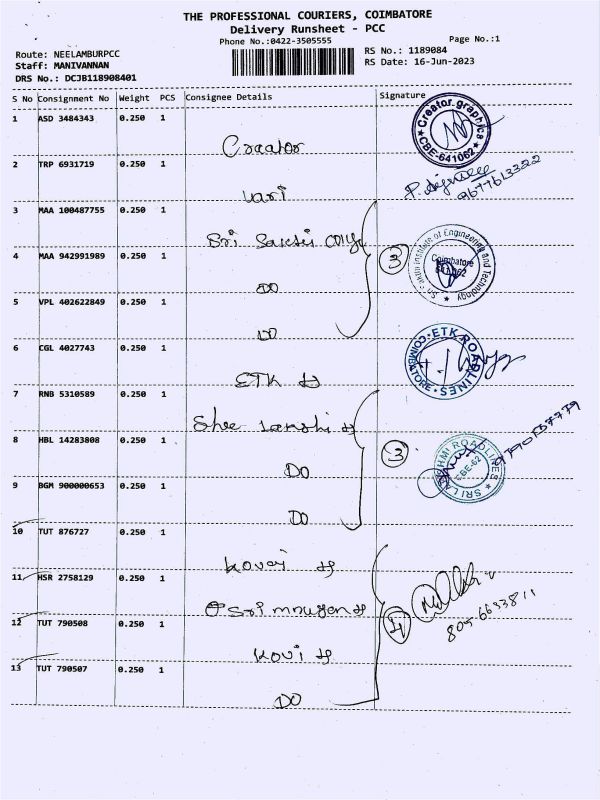 THE PROFESSIONAL COURIERS, COIMBATORE
Delivery Runsheet - PCC
Phone No.:0422-3505555
Page No.:1
Route: NEELAMBURPCC
Staff: MANIVANNAN
DRS No.: DCJB118908401
RS No.: 1189084
RS Date: 16-Jun-2023
S No Consignment No Weight PCS Consignee Details Signature
1 ASD 3484343 0.250 1 Creator
Creator graphics CBE-641062
2 TRP 6931719 0.250 1
9677613322
3 MAA 100487755 0.250 1 Sri
4 MAA 942991989 0.250 1 DO
3
Institute of Engineering and Technology
Coimbatore
5 VPL 402622849 0.250 1 DO
6 CGL 4027743 0.250 1 ETK
ETK ROADLINES COIMBATORE
7 RNB 5310589 0.250 1 Shee
8 HBL 14283808 0.250 1 DO
3
SRI LAKSHMI ROADLINES
CBE-62
9 BGM 900000653 0.250 1 DO
10 TUT 876727 0.250 1 Kovai
11 HSR 2758129 0.250 1 Sri
12 TUT 790508 0.250 1 Kovi
4
13 TUT 790507 0.250 1 DO